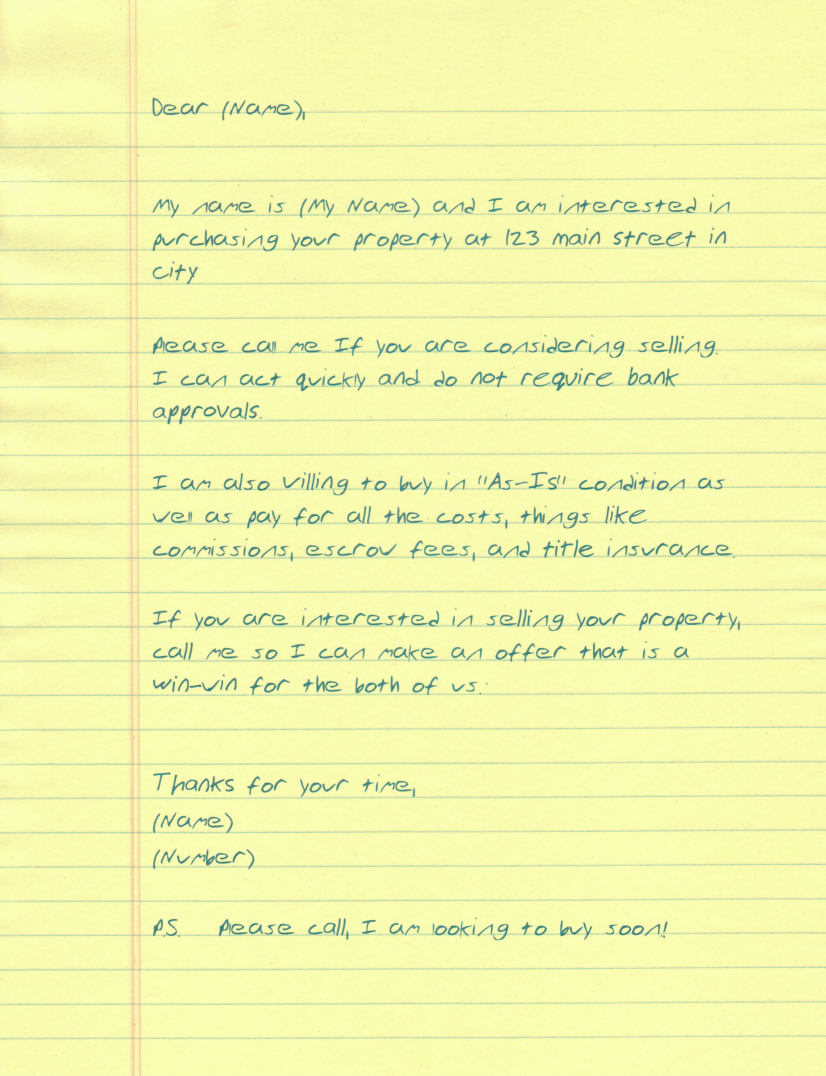 Dear (Name),
My name is (My Name) and I am interested in
purchasing your property at 123 main street in
city
Please call me If you are considering selling.
I can act quickly and do not require bank
approvals.
I am also willing to buy in "As-Is" condition as
well as pay for all the costs, things like
commissions, escrow fees, and title insurance.
If you are interested in selling your property,
call me so I can make an offer that is a
win-win for the both of us.
Thanks for your time,
(Name)
(Number)
P.S. Please call, I am looking to buy soon!